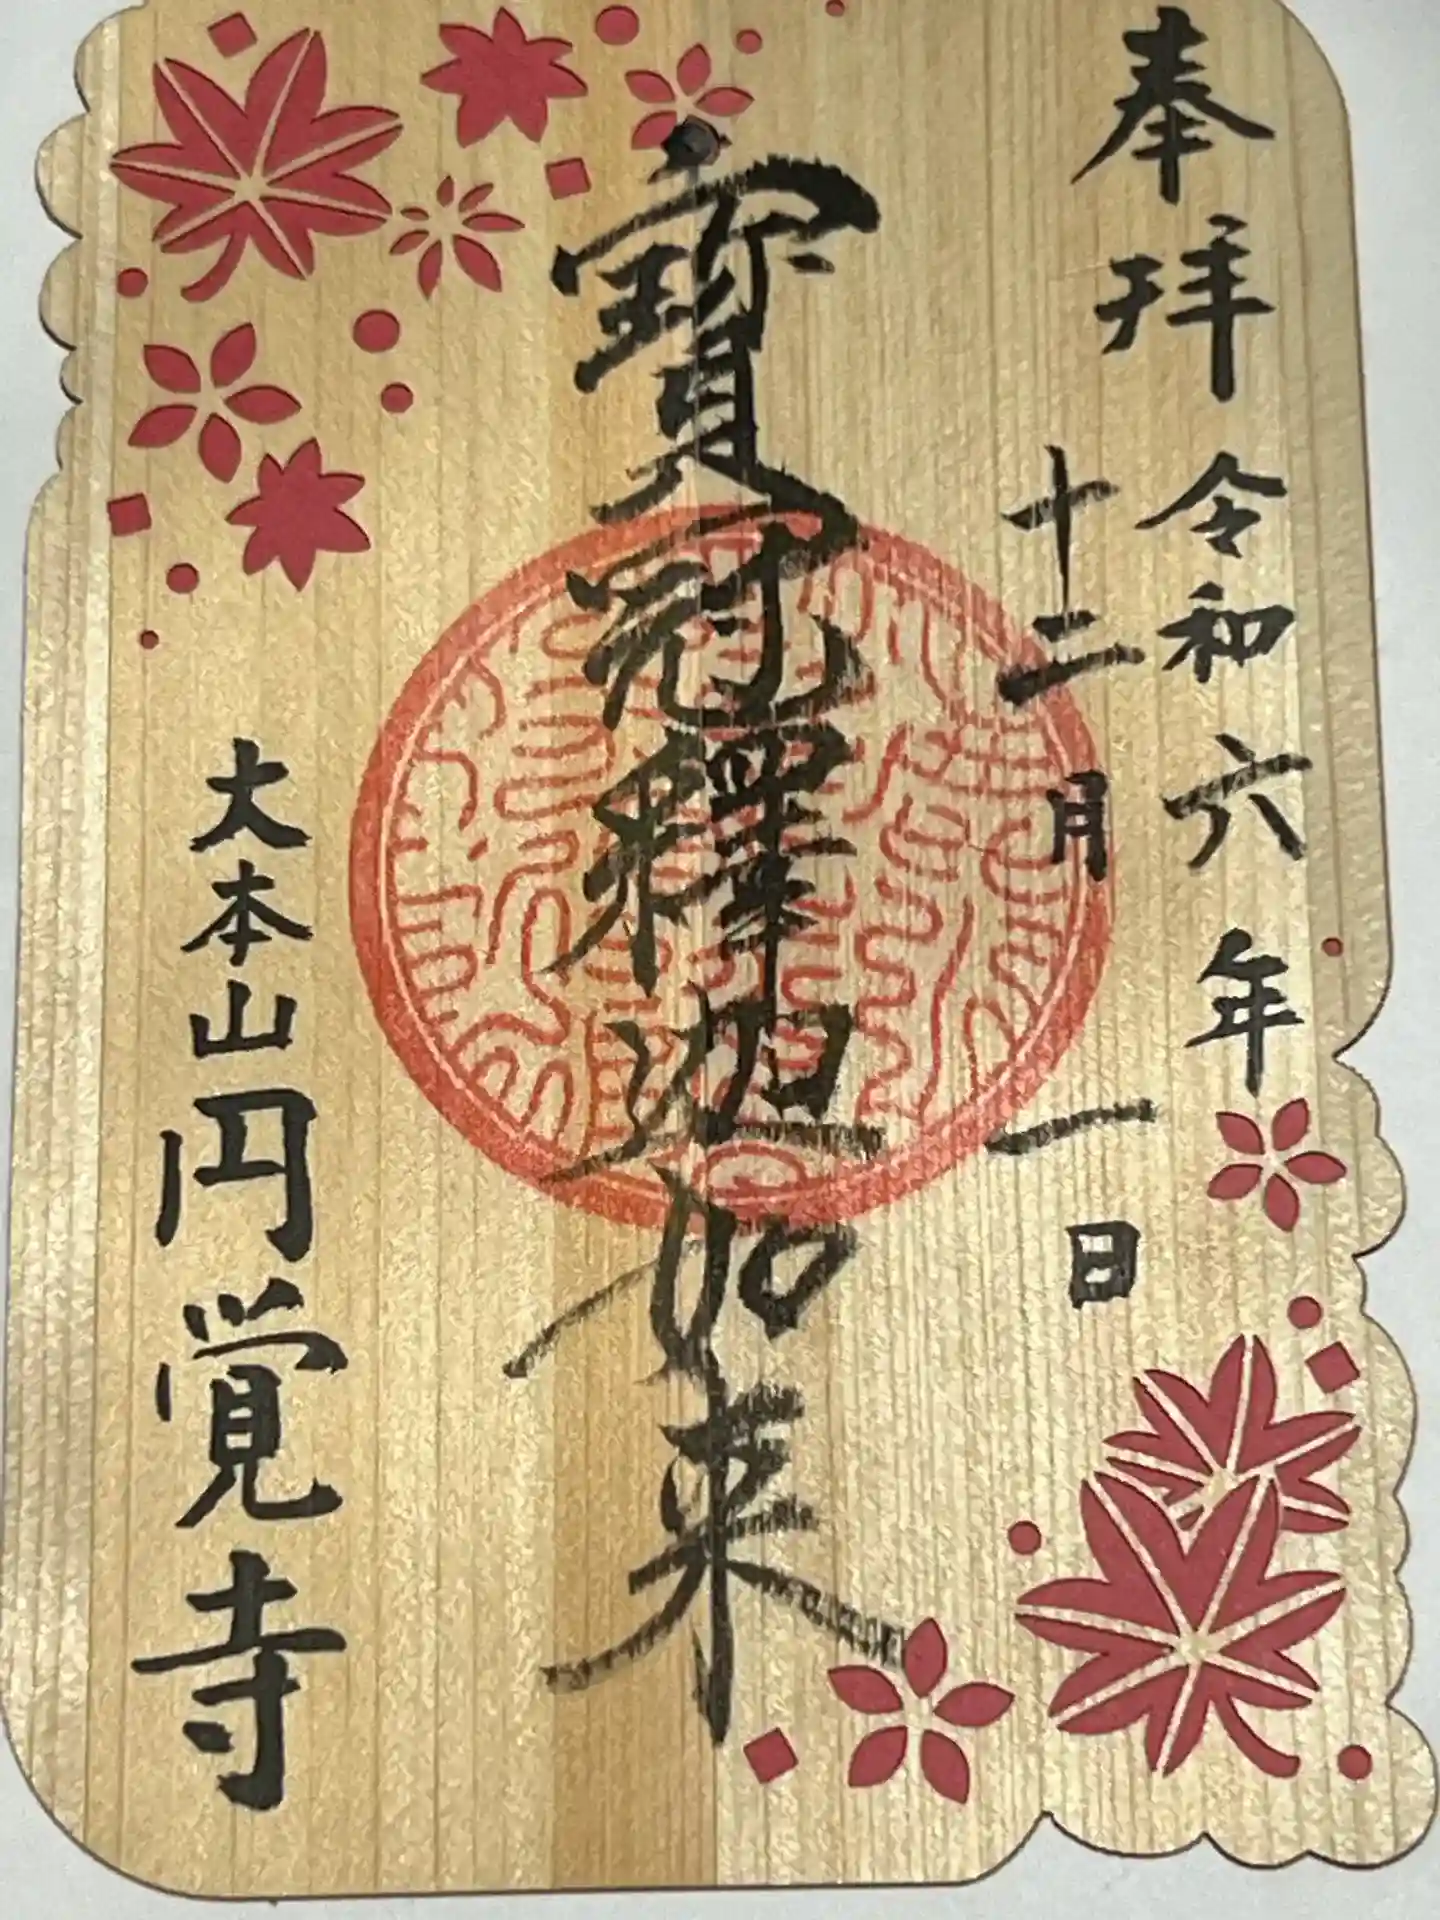 奉拜
令和六年
十二月一日
寶冠釋迦如来
大本山円覚寺